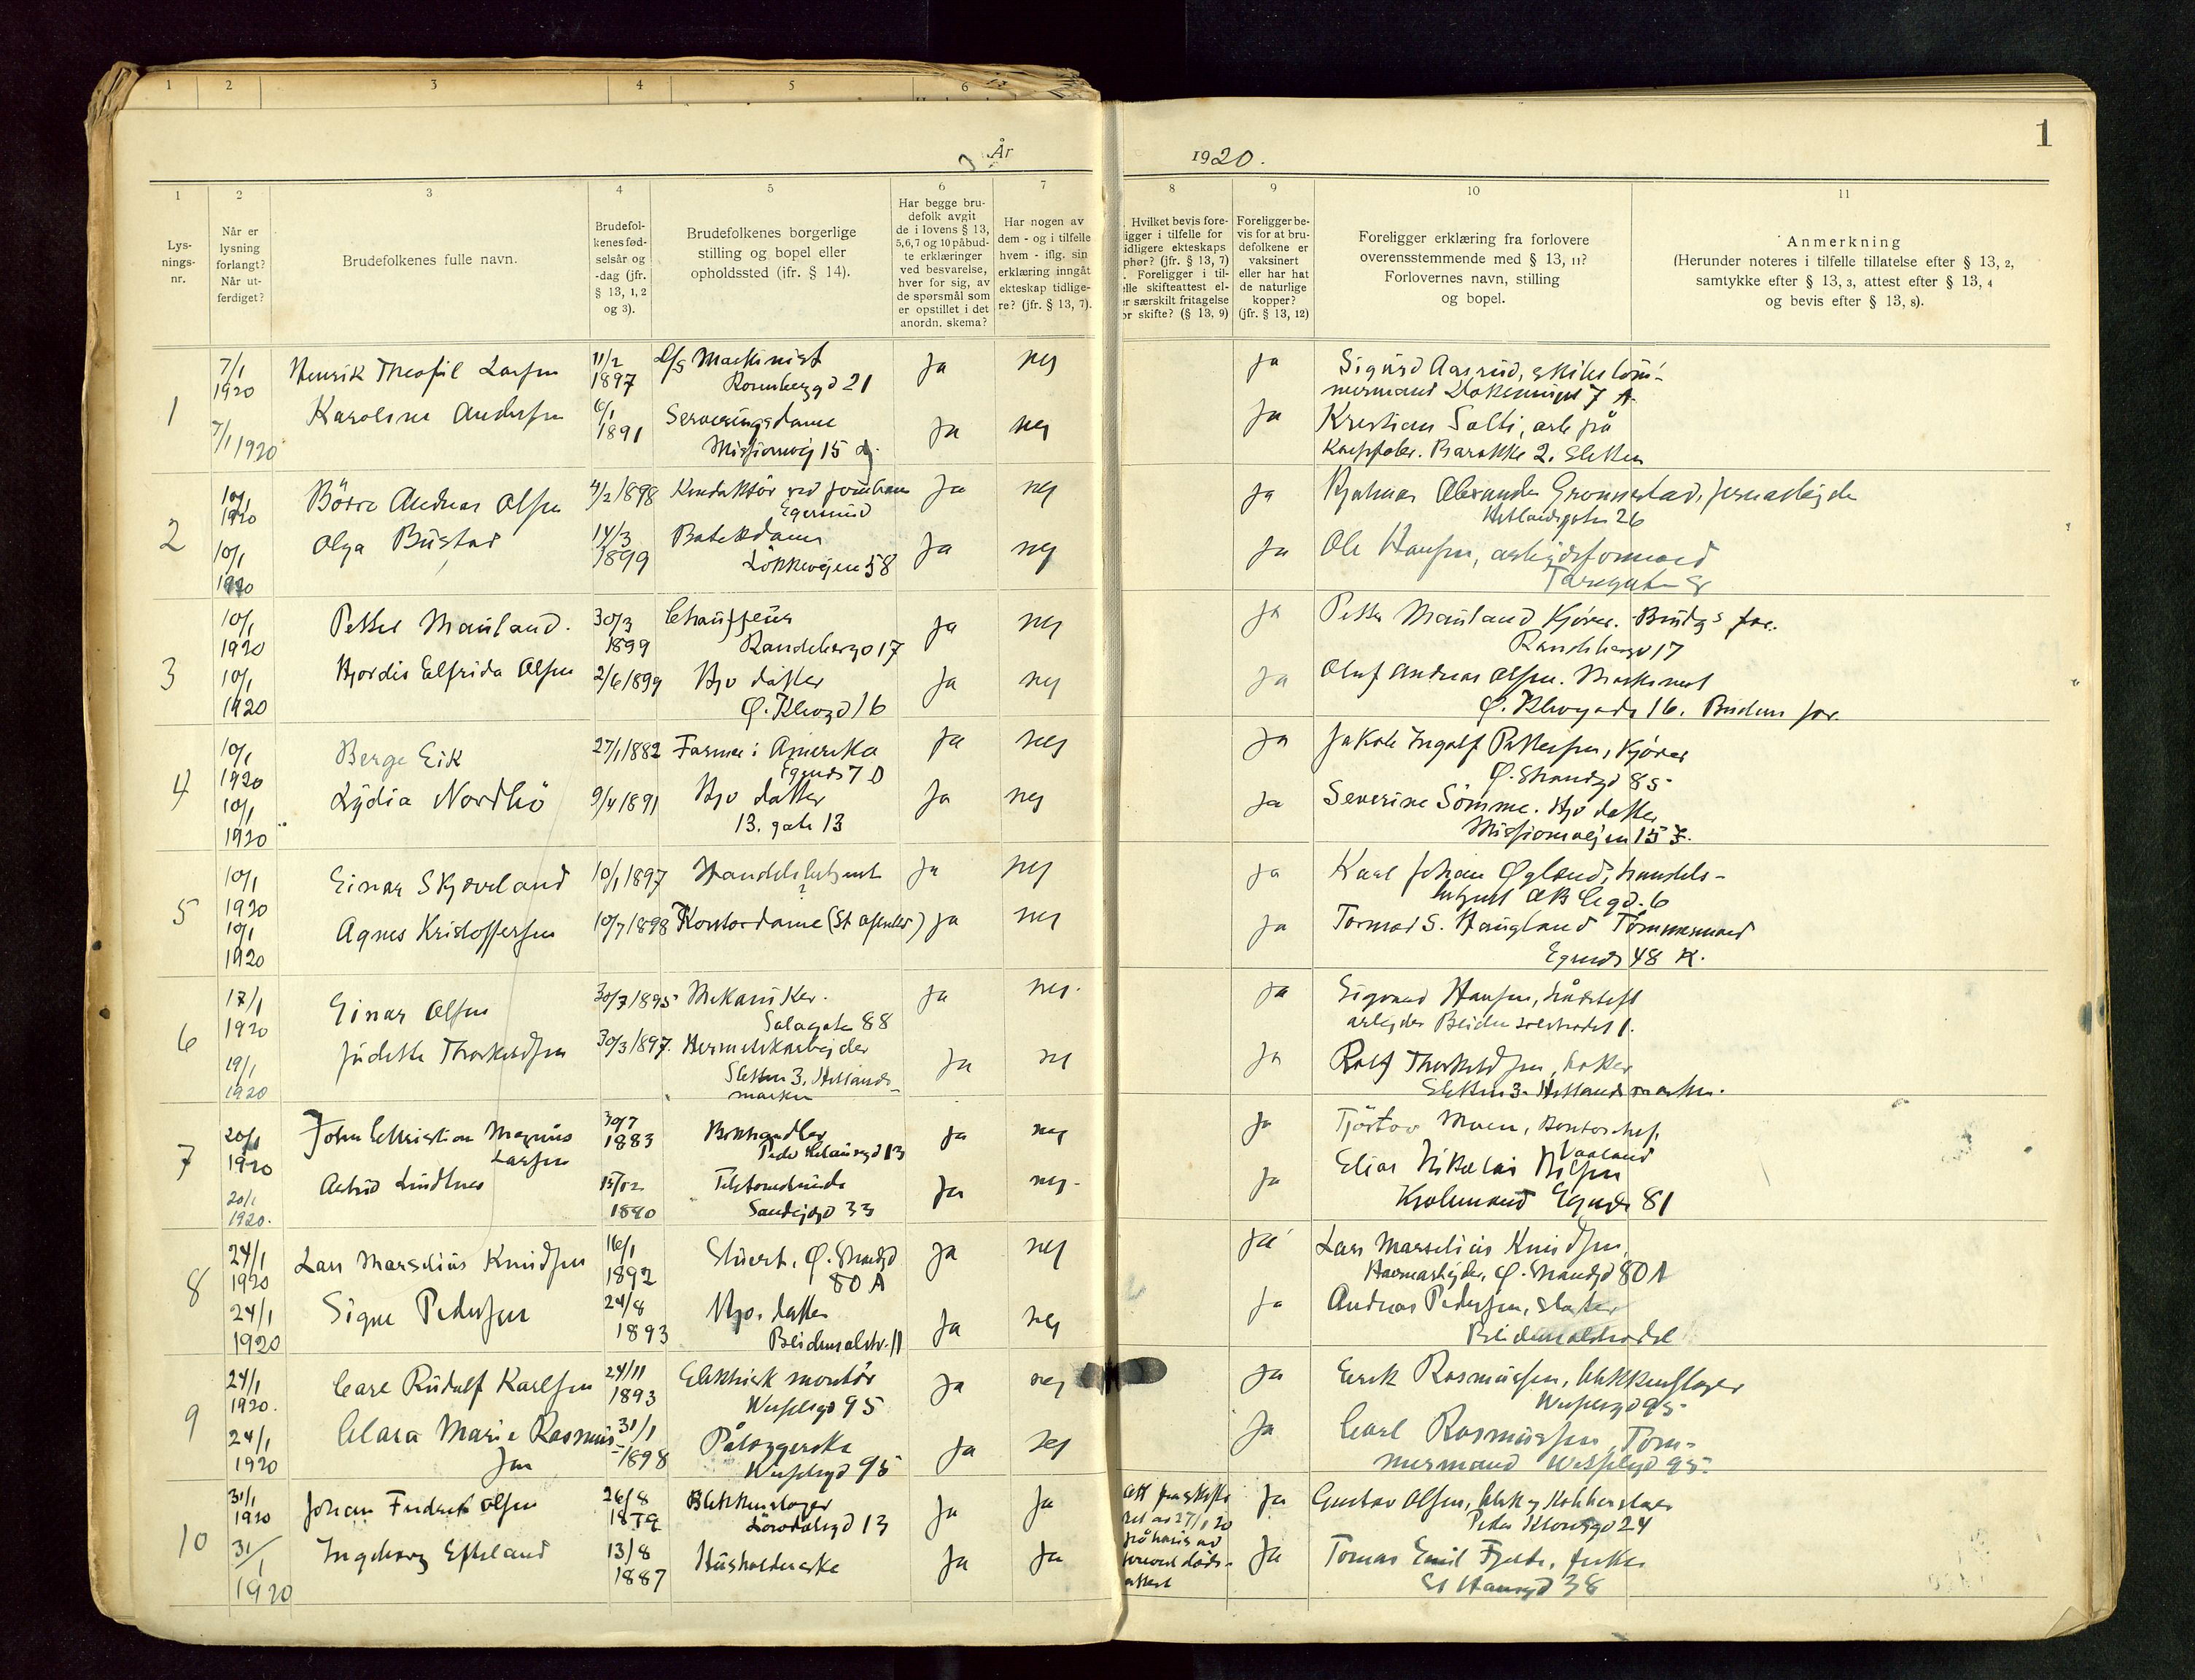 1 2 3 4 5 6
År 1920.
1
1 2 3 4 5 6 7 8 9 10 11
Lys-
nings-
nr.
Når er
lysning
forlangt?
Når ut-
ferdiget?
Brudefolkenes fulle navn.
Brudefol-
kenes fød-
selsår og
-dag (jfr.
§ 13, 1, 2
og 3).
Brudefolkenes borgerlige
stilling og bopel eller
opholdssted (jfr. § 14).
Har begge bru-
defolk avgit
de i lovens § 13,
5,6,7 og 10 påbud-
te erklæringer
ved besvarelse,
hver for sig, av
de spørsmål som
er opstillet i det
anordn. skema?
Har nogen av
dem - og i tilfelle
hvem - iflg. sin
erklæring inngått
ekteskap tidlige-
re? (jfr. § 13, 7).
Hvilket bevis fore-
ligger i tilfelle for
tidligere ekteskaps
ophør? (jfr. § 13, 7)
Foreligger i til-
elle skifteattest el-
er særskilt fritagelse
or skifte? (§ 13, 9)
Foreligger be-
vis for at bru-
defolkene er
vaksinert
eller har hat
de naturlige
kopper?
(jfr. § 13, 12)
Foreligger erklæring fra forlovere
overensstemmende med § 13, 11?
Forlovernes navn, stilling
og bopel.
Anmerkning
(Herunder noteres i tilfelle tillatelse efter § 13, 2,
samtykke efter § 13, 3, attest efter § 13, 4
og bevis efter § 13, 8).
1
7/1 1920 Henrik Theofil Larsen 11/2 1897 Maskinist 21 Ja nej ja Sigurd Aasrud, skibstöm-
mermand 7 A
7/1 1920 Karoline Andersen 6/1 1891 Serveringsdame Ja nej Ja Kristian Salti, arb på
Missionsvej 15 Barakke 2. Sletten
2
10/1 1920 Börre Andreas Olsen 4/2 1898 Konduktör ved jernbanen Ja nej ja Hjalmar Alexander Grønnestad,
Egersund Hetlandsgaten 26
10/1 1920 Olga Bustad 14/3 1899 Butikdame Ja nej Ja Ole Hansen, arbejdsformand
Lökkevejen 58
3
10/1 1920 Petter Mauland. 30/3 1899 Chauffeur Ja nej Ja Petter Mauland Kjörer. Brudg.s far.
Randebergd 17 Randebergd 17
10/1 1920 Hjordis Elfrida Olsen 2/6 1899 Hjv datter Ja nej Ja Oluf Andreas Olsen. Maskinist
Ø. Klevgd 16 Ø. Klevgade 16. Brudens far.
4
10/1 1920 Berge Eik 27/1 1882 Farmer i Amerika Ja nej Ja Jakob Ingolf Pettersen, Kjörer
Egends 7 D Ø. Strandgd 85
10/1 1920 Lydia Nordbö 9/4 1891 Hjv datter Ja nej Ja Severine Sömme. Hjv datter
13. gate 13 Missionsvejen 15
5
10/1 1920 Einar Skjæveland 10/1 1897 Handelsbetjent Ja nej Ja Karl Johan Øgland, handels-
betjent 6
10/1 1920 Agnes Kristoffersen 10/7 1898 Kontordame Ja nej Ja Tormod S. Haugland Tömmermand
Egends 48 K.
6
17/1 1920 Einar Olsen 30/7 1895 Mekaniker. Ja nej. Ja Sigvard Hansen,
Salagaten 88 arbejder 1.
19/1 1920 Judette Thorkildsen 30/3 1897. Hermetikarbejder Ja nej Ja Rolf Thorkildsen,
Sletten 3, Hetlands- Sletten 3. Hetlandsmarken.
marken
7
20/1 1920 John Christian Magnus 30/7 1883 Bokhandler Ja nej Ja Tjöstov Moen, Kontorchef,
Larsen 13 Vaaland
20/1 1920. Astrid Lindtner 15/12 1890 Ja nej. Ja Elias Nikolai Nilsen
33 Egends 81
8
24/1 1920 Lars Marselius Knudsen 16/1 1892 Stuert. Ø. Strandgd Ja nej Ja Lars Marselius Knudsen,
80 A Havnearbejder, Ø. Strandgd 80 A
24/1 1920 Signe Pedersen 24/8 1893 Hjv. datter Ja nej Ja Andreas Pedersen, slakter
11
9
24/1 1920. Carl Rudolf Karlsen 24/11 1893 Elektrisk montör Ja nej Ja Erik Rasmussen, blikkenslager
Wesselsgd 95 Wesselsgd 95
24/1 1920 Clara Marie Rasmus- 31/1 1898 Påleggerske Ja nej Ja Carl Rasmussen, Töm-
sen Wesselsgd 95 mermand Wesselsgd 95
10
31/1 1920 Johan Fredrik Olsen 26/8 Blikkenslager Ja Ja Att fra skifte- Ja Gustav Olsen,
13 ret av 27/1 20 Peder Klowsgd 24
31/1 1920 Ingeborg Efteland 13/8 1887 Husholderske Ja Ja attest Ja Tomas Emil
St Hansgd 38